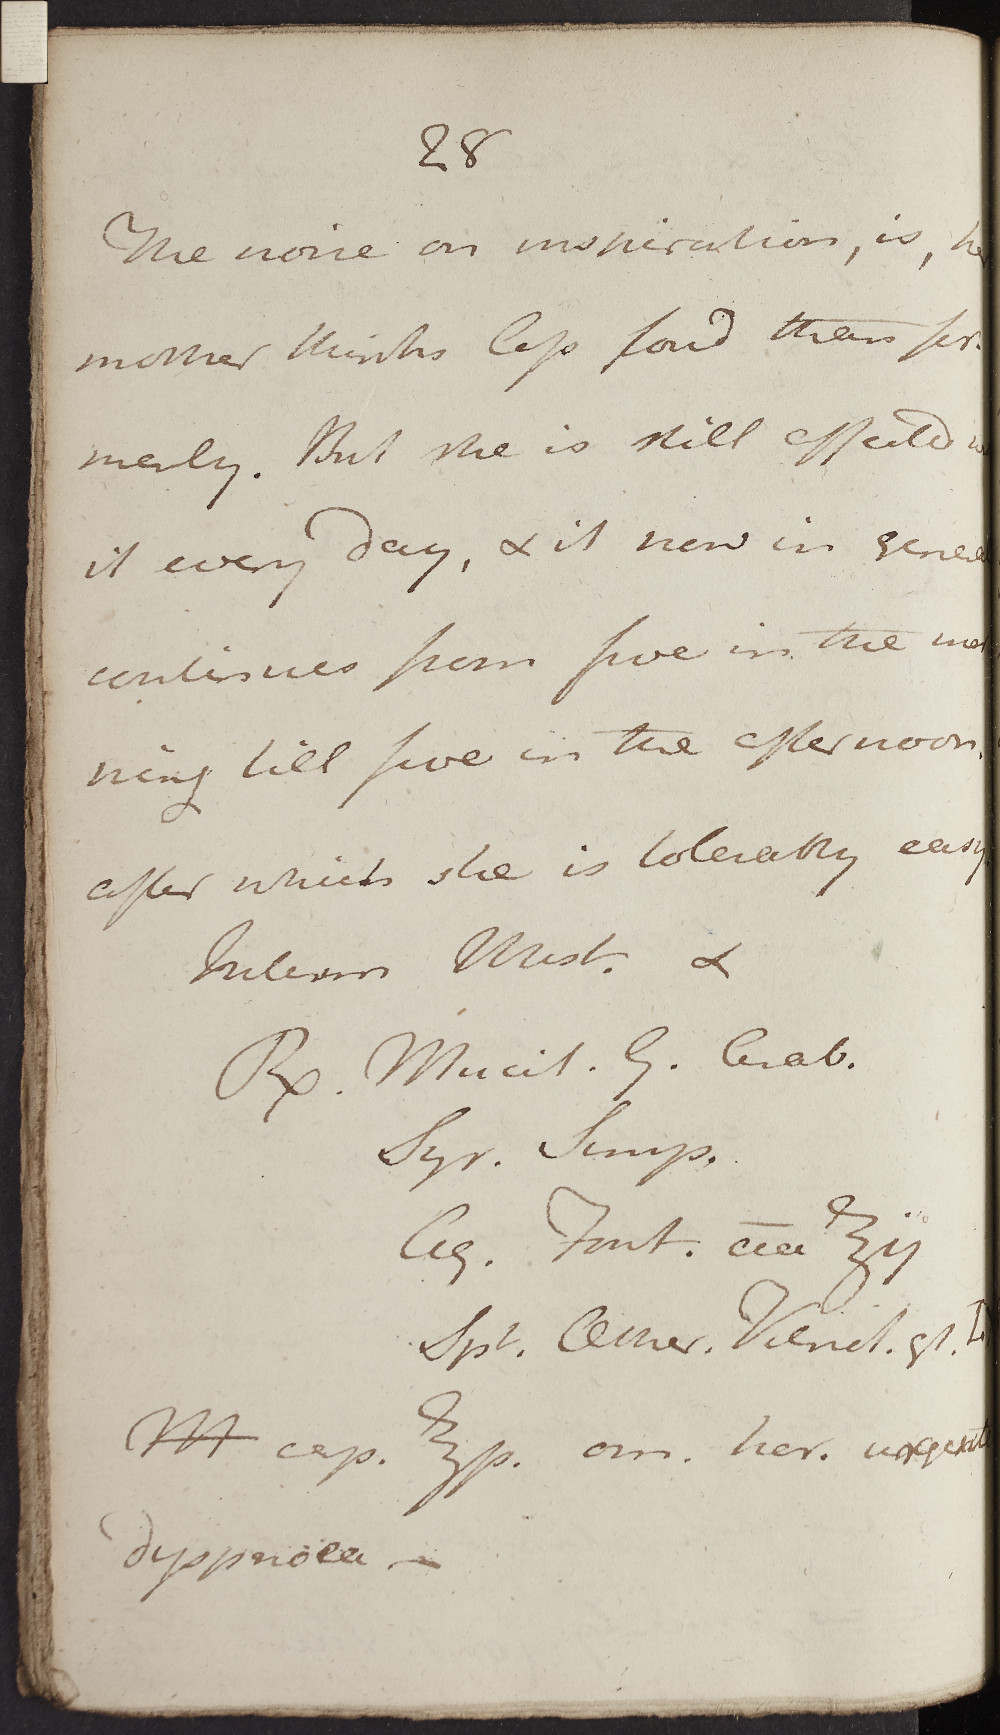 28
The noise on inspiration, is, her
mother thinks less loud than for-
merly. But she is still affected
it every day, & it now in general
continues from five in the mor
ning till five in the afternoon.
after which she is tolerably easy.
Interm Mist. &
Rx. Mucil. G. Arab.
Syr. Simp.
Aq. Font. āā ℥ij
Spt. Æther. Vitriol. gt.
M cap. ℥p. om. hor. urgente
dyspnoea —